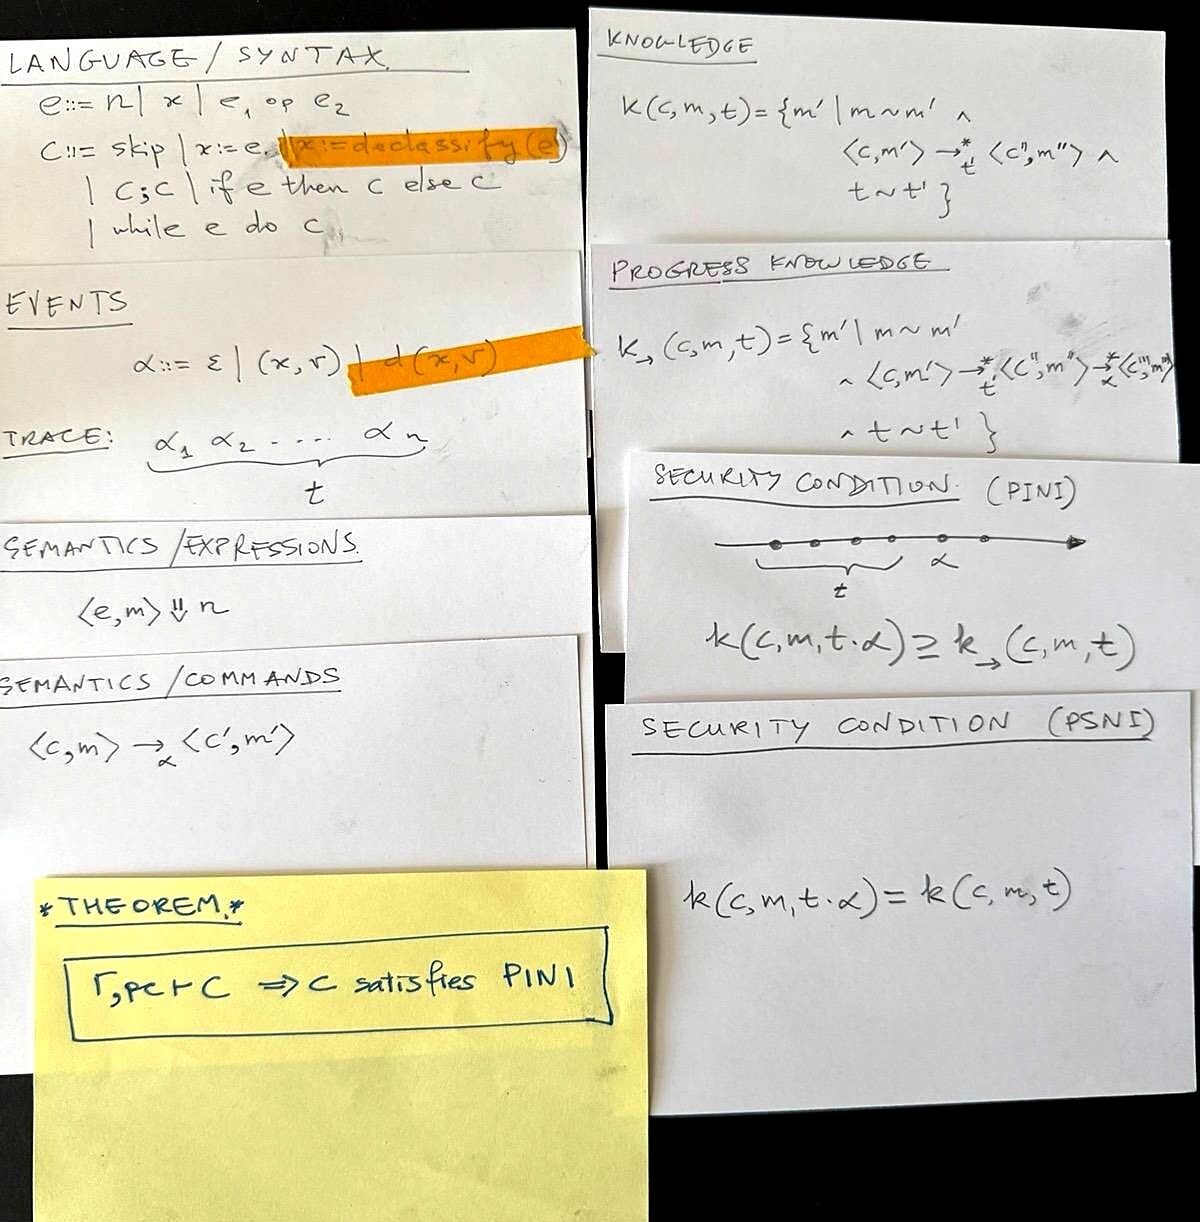 LANGUAGE / SYNTAX
e ::= n | x | e₁ op e₂
c ::= skip | x := e | x := declassify (e)
| c ; c | if e then c else c
| while e do c
EVENTS
α ::= ε | (x, v) | d (x, v)
TRACE: α₁ α₂ .... αn
t
SEMANTICS / EXPRESSIONS
⟨e, m⟩ ⇓ n
SEMANTICS / COMMANDS
⟨c, m⟩ →α ⟨c', m'⟩
*THEOREM.*
Γ, pc ⊢ C ⇒ C satisfies PINI
KNOWLEDGE
k (c, m, t) = {m' | m ~ m' ∧
⟨c, m'⟩ →*t' ⟨c'', m''⟩ ∧
t ~ t' }
PROGRESS KNOWLEDGE
k→ (c, m, t) = {m' | m ~ m'
∧ ⟨c, m'⟩ →*t' ⟨c'', m''⟩ →*α ⟨c''', m'''⟩
∧ t ~ t' }
SECURITY CONDITION. (PINI)
t α
k (c, m, t·α) ⊇ k→ (c, m, t)
SECURITY CONDITION (PSNI)
k (c, m, t·α) = k (c, m, t)